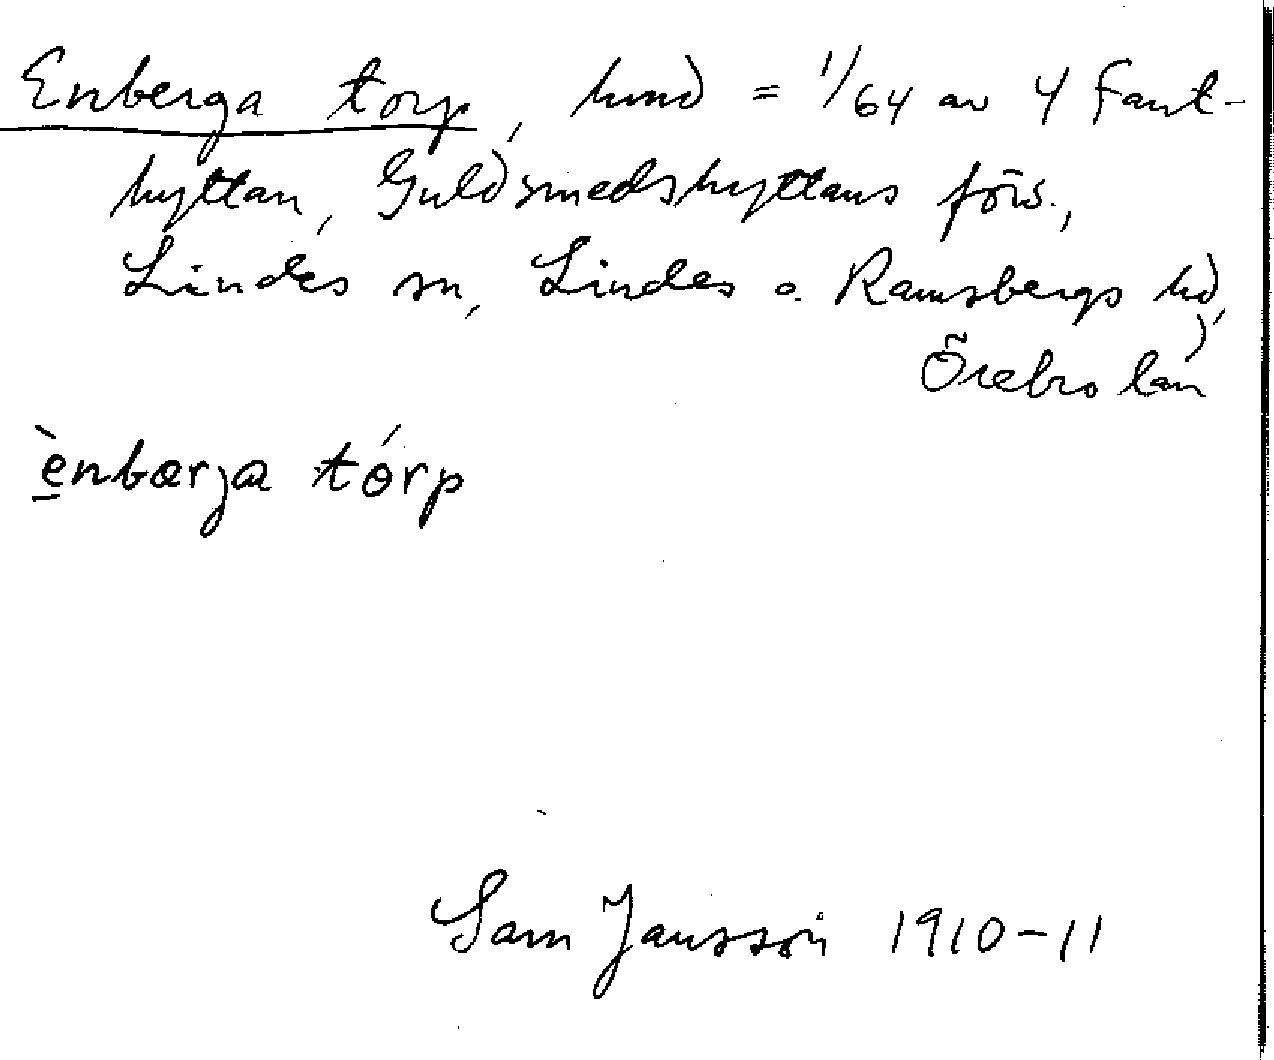 Enberga torp, hmd = 1/64 av 4 Fant-
hyttan, Guldsmedshyttans förs.,
Lindes sn, Lindes o. Ramsbergs hd,
Örebro län
ènbærja tórp
Sam Jansson 1910-11